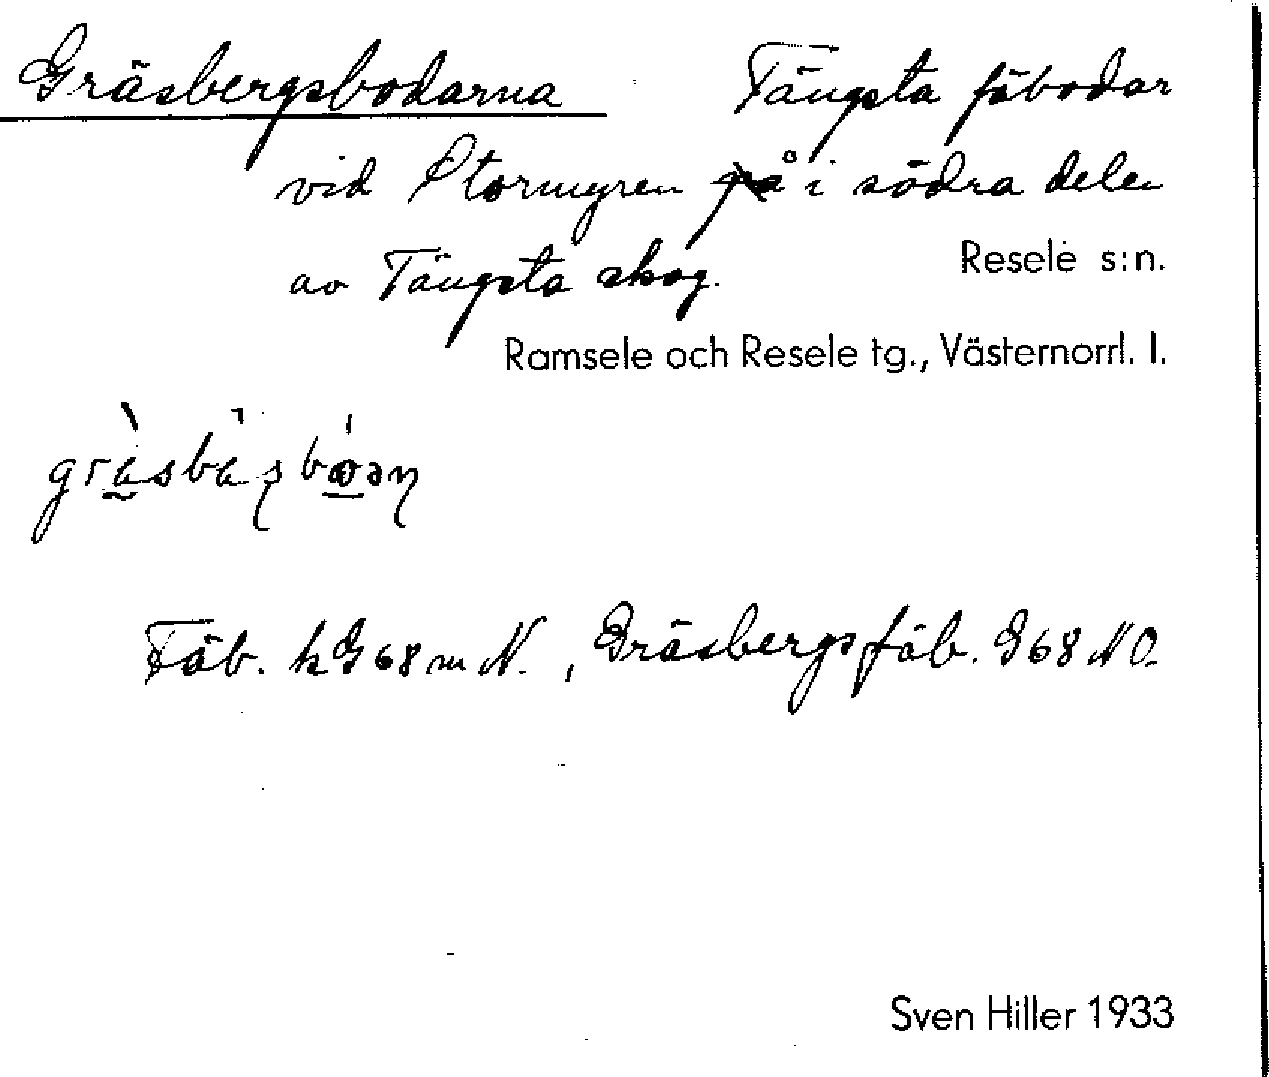 Gräsbergsbodarna Tängsta fäbodar
vid Stormyren på i södra delen
av Tängsta skog. Resele s:n.
Ramsele och Resele tg., Västernorrl. l.
Fäb. k G68 m N., Gräsbergsfäb. G68 NO.
Sven Hiller 1933